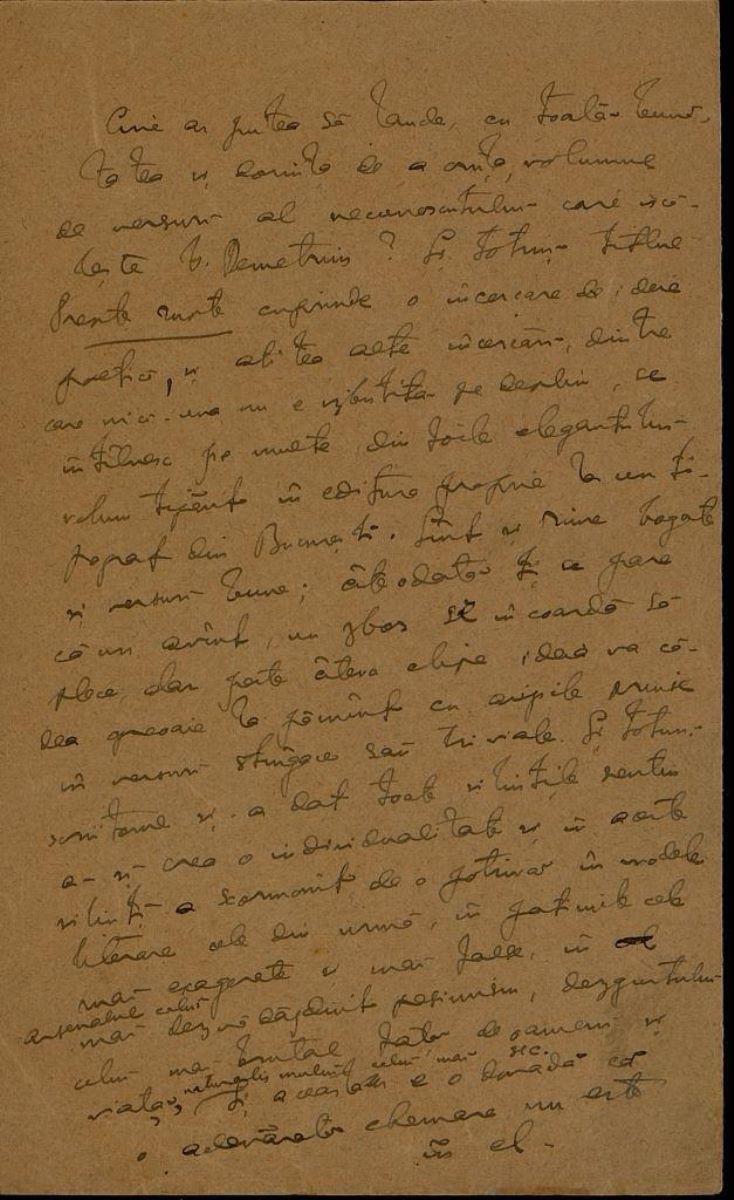 Cine ar putea să laude, cu toată bună-
tatea și dorința de a cruța, volumul
de versuri al necunoscutului care iscă-
lește V. Demetrius? Și totuși titlul
Preste moarte cuprinde o încercare de idee
poetică, și atîtea alte încercări, dintre
care nici-una nu e izbutită pe deplin, se
întîlnesc pe multe din foile elegantului
volum tipărit în editura proprie la un ti-
pograf din București. Sînt și rime bogate
și versuri bune; câteodată ți se pare
că un avînt, un zbor se încoardă să
plece, dar peste câteva clipe ideea va că-
dea greoaie la pămînt cu aripile
în versuri stîngace sau triviale. Și totuși
scriitorul și-a dat toate silințile pentru
a-și crea o individualitate și în aceste
silinți a scormonit de o potrivă în modele
literare cele din urmă, în patimile cele
mai exagerate și mai false, în
arsenalul celui
mai deznădăjduit pesimism, dezgustului
celui mai brutal față de oameni și
viață, naturalismului celui mai sec.
Și aceasta e o dovadă că
o adevărată chemare nu este
în el.